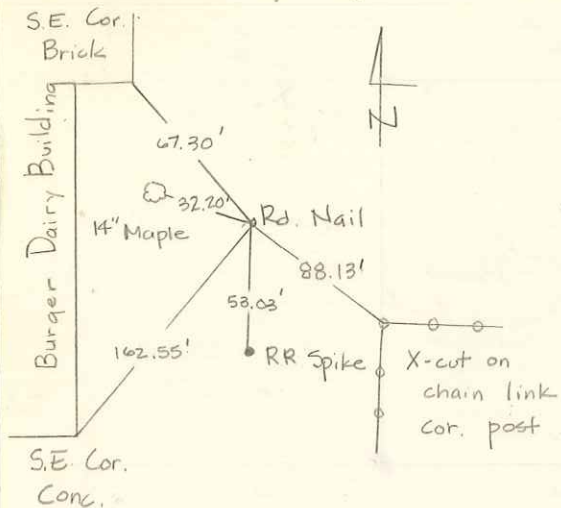 S.E. Cor.
Brick
Burger Dairy Building
67.30'
32.20'
14" Maple
Rd. Nail
88.13'
53.03'
162.55'
RR Spike
X-cut on
chain link
cor. post
S.E. Cor.
Conc.
N